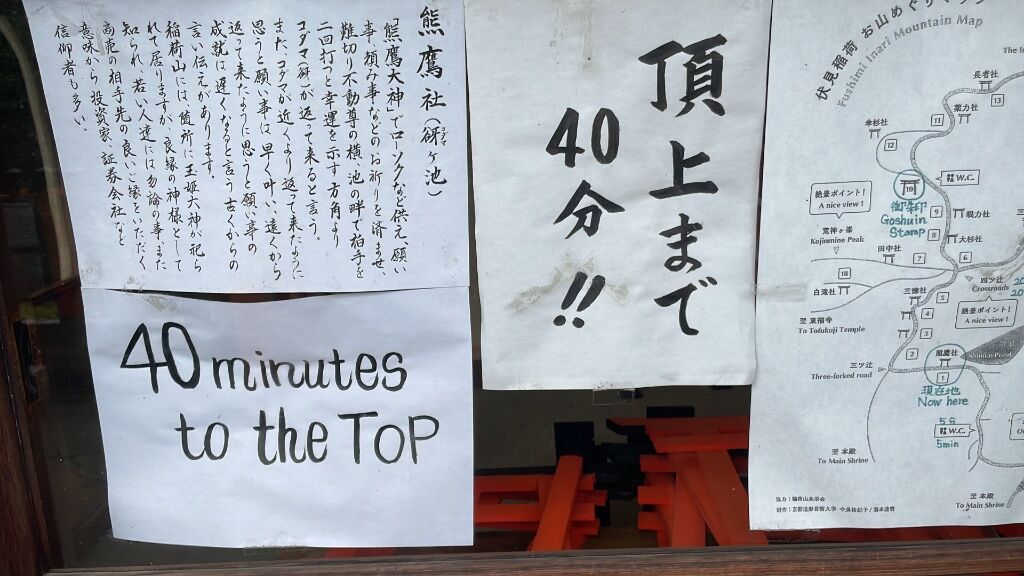 熊鷹社(谺ヶ池)
『熊鷹大神でローソクなど供え願い
事、頼み事などのお祈りを済ませ、
難切り不動尊の横、池の畔で拍手を
二回打つと幸運を示す方角より
コダマ(谺)が返って来ると言う。
また、コダマが近くより返って来たように
思うと願い事は、早く叶い、遠くから
返って来たように思うと願い事の
成就は遅くなると言う古くからの
言い伝えがあります。
稲荷山には、随所に玉姫大神が祀ら
れて居りますが、良縁の神様として
知られ、若い人達には勿論の事、また
商売の相手先の良いご縁をいただく
意味から、投資家、証券会社など
信仰者も多い。
40 minutes
to the TOP
頂上まで
40分!!
伏見稲荷 お山めぐりマップ
Fushimi Inari Mountain Map
長者社
13
薬力社
11
傘杉社
12
W.C.
御朱印
Goshuin
Stamp
絶景ポイント!
A nice view!
荒神ヶ峯
Kojinmine Peak
9
眼力社
8
大杉社
田中社
7
6
18
白滝社
四ツ辻
Crossroads
三徳社
5
絶景ポイント!
A nice view!
至 東福寺
To Tofukuji Temple
4
3
2
熊鷹社
1
三ツ辻
Three-forked road
現在地
Now here
5分
W.C.
5min
至 本殿
To Main Shrine
至 本殿
To Main Shrine